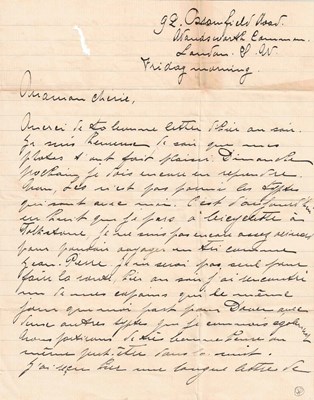 92. Bloomfield Road.
Wandsworth Common.
London. S. W.
Friday morning.
Maman chérie,
Merci de ta bonne lettre d'hier au soir.
Je suis heureux de voir que mes
photos t'ont fait plaisir. Dimanche
prochain je dois encore en reprendre.
Non, Léo n'est pas parmi les types
qui sont avec moi. C'est d'aujourd'hui
en huit que je pars à bicyclette à
Folkestone. Je ne suis pas encore assez
pour pouvoir voyager en comme
Jean. Pierre je ne serai pas seul pour
faire la route, hier au soir j'ai rencontré
un de mes copains qui le même
jour que moi part pour Douvres avec
deux autres types que je connais également
nous partirons de très bonne heure ou
même peut-être dans la nuit.
J'ai reçu hier une longue lettre de